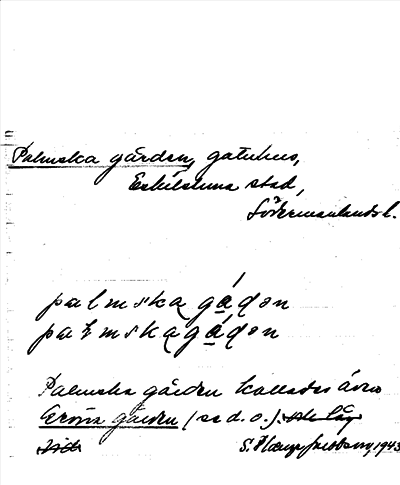 Palmska gården, gatuhus,
Eskilstuna stad,
Södermanlands l.
palmska gådǝn
paɫmskagådǝn
Palmska gården kallades även
Gröna gården (se d. o.).
1943